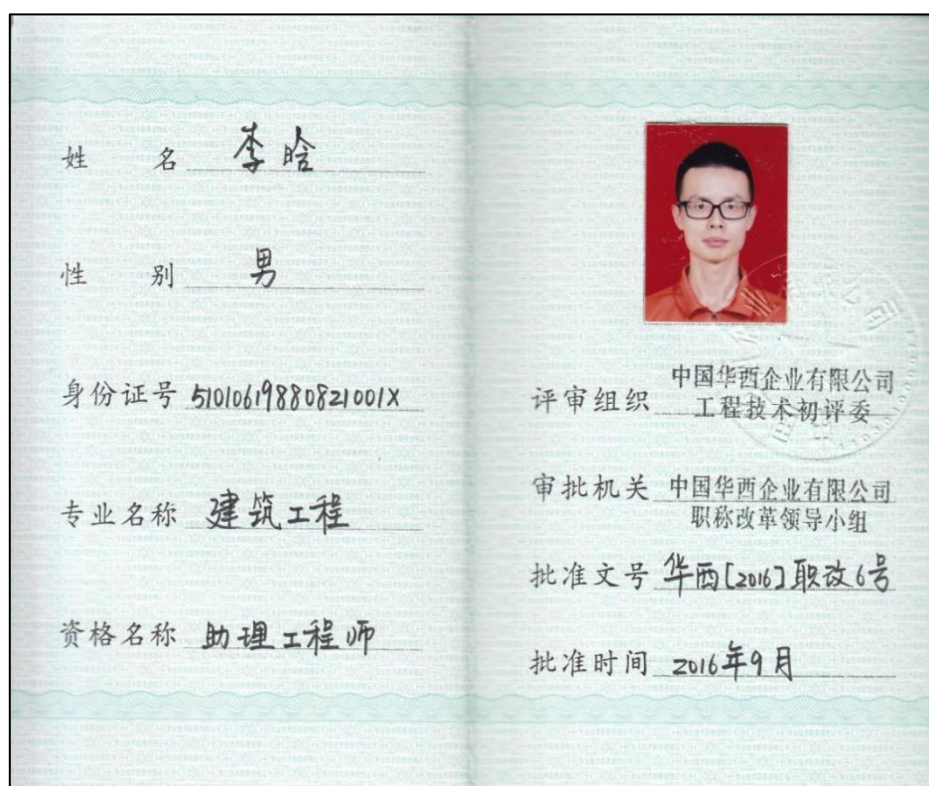 姓名 李晗
性别 男
身份证号 51010619880821001X
专业名称 建筑工程
资格名称 助理工程师
评审组织 中国华西企业有限公司
工程技术初评委
审批机关 中国华西企业有限公司
职称改革领导小组
批准文号 华西[2016]职改6号
批准时间 2016年9月